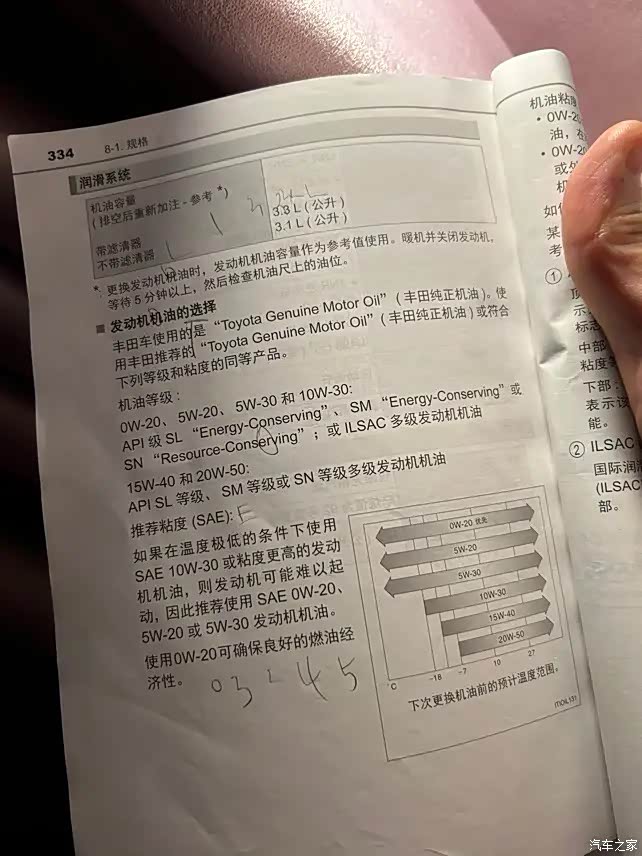 334
8-1. 规格
润滑系统
机油容量
(排空后重新加注 - 参考 *)
带滤清器
3.3 L (公升)
不带滤清器
3.1 L (公升)
*: 更换发动机机油时,发动机机油容量作为参考值使用。暖机并关闭发动机,
等待 5 分钟以上,然后检查机油尺上的油位。
■ 发动机机油的选择
丰田车使用的是 “Toyota Genuine Motor Oil” (丰田纯正机油)。使
用丰田推荐的 “Toyota Genuine Motor Oil” (丰田纯正机油) 或符合
下列等级和粘度的同等产品。
机油等级:
0W-20、5W-20、5W-30 和 10W-30:
API 级 SL “Energy-Conserving”、SM “Energy-Conserving” 或
SN “Resource-Conserving”;或 ILSAC 多级发动机机油
15W-40 和 20W-50:
API SL 等级、SM 等级或 SN 等级多级发动机机油
推荐粘度 (SAE):
如果在温度极低的条件下使用
SAE 10W-30 或粘度更高的发动
机机油,则发动机可能难以起
动,因此推荐使用 SAE 0W-20、
5W-20 或 5W-30 发动机机油。
使用0W-20可确保良好的燃油经
济性。
03 - 45
0W-20 优先
5W-20
5W-30
10W-30
15W-40
20W-50
°C
-18
-7
10
27
下次更换机油前的预计温度范围。
机油粘
• 0W-2
油,在
• 0W-20
或
机
如
某
考
①
顶
示
标志
中部
粘度等
下部:
表示该
能。
② ILSAC
国际润
(ILSAC
部。
汽车之家